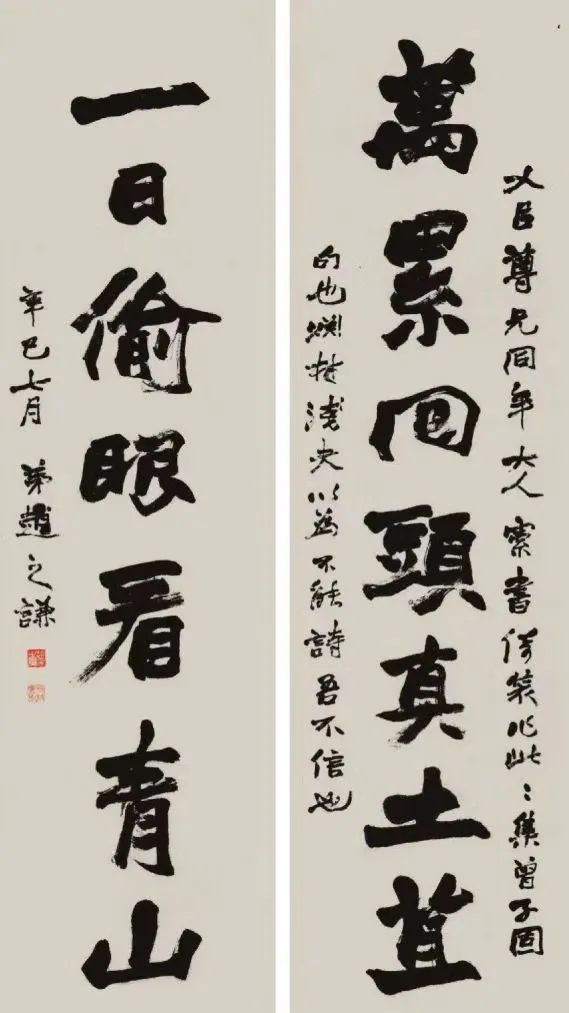 尊兄同年大人索書倚裝作此〻集曾子固
萬累回頭真土苴
句也淺夫以為不能詩吾不信也
一日偷眼看青山
辛巳七月 弟趙之謙